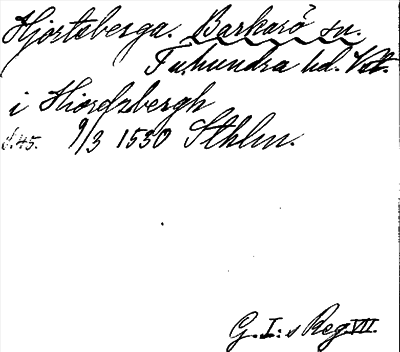 Hjortsberga. Barkarö sn.
Tuhundra hd. Vstt.
i Hiordzbergh
s. 45. 9/3 1530 Sthlm.
G. I:s Reg. VII.